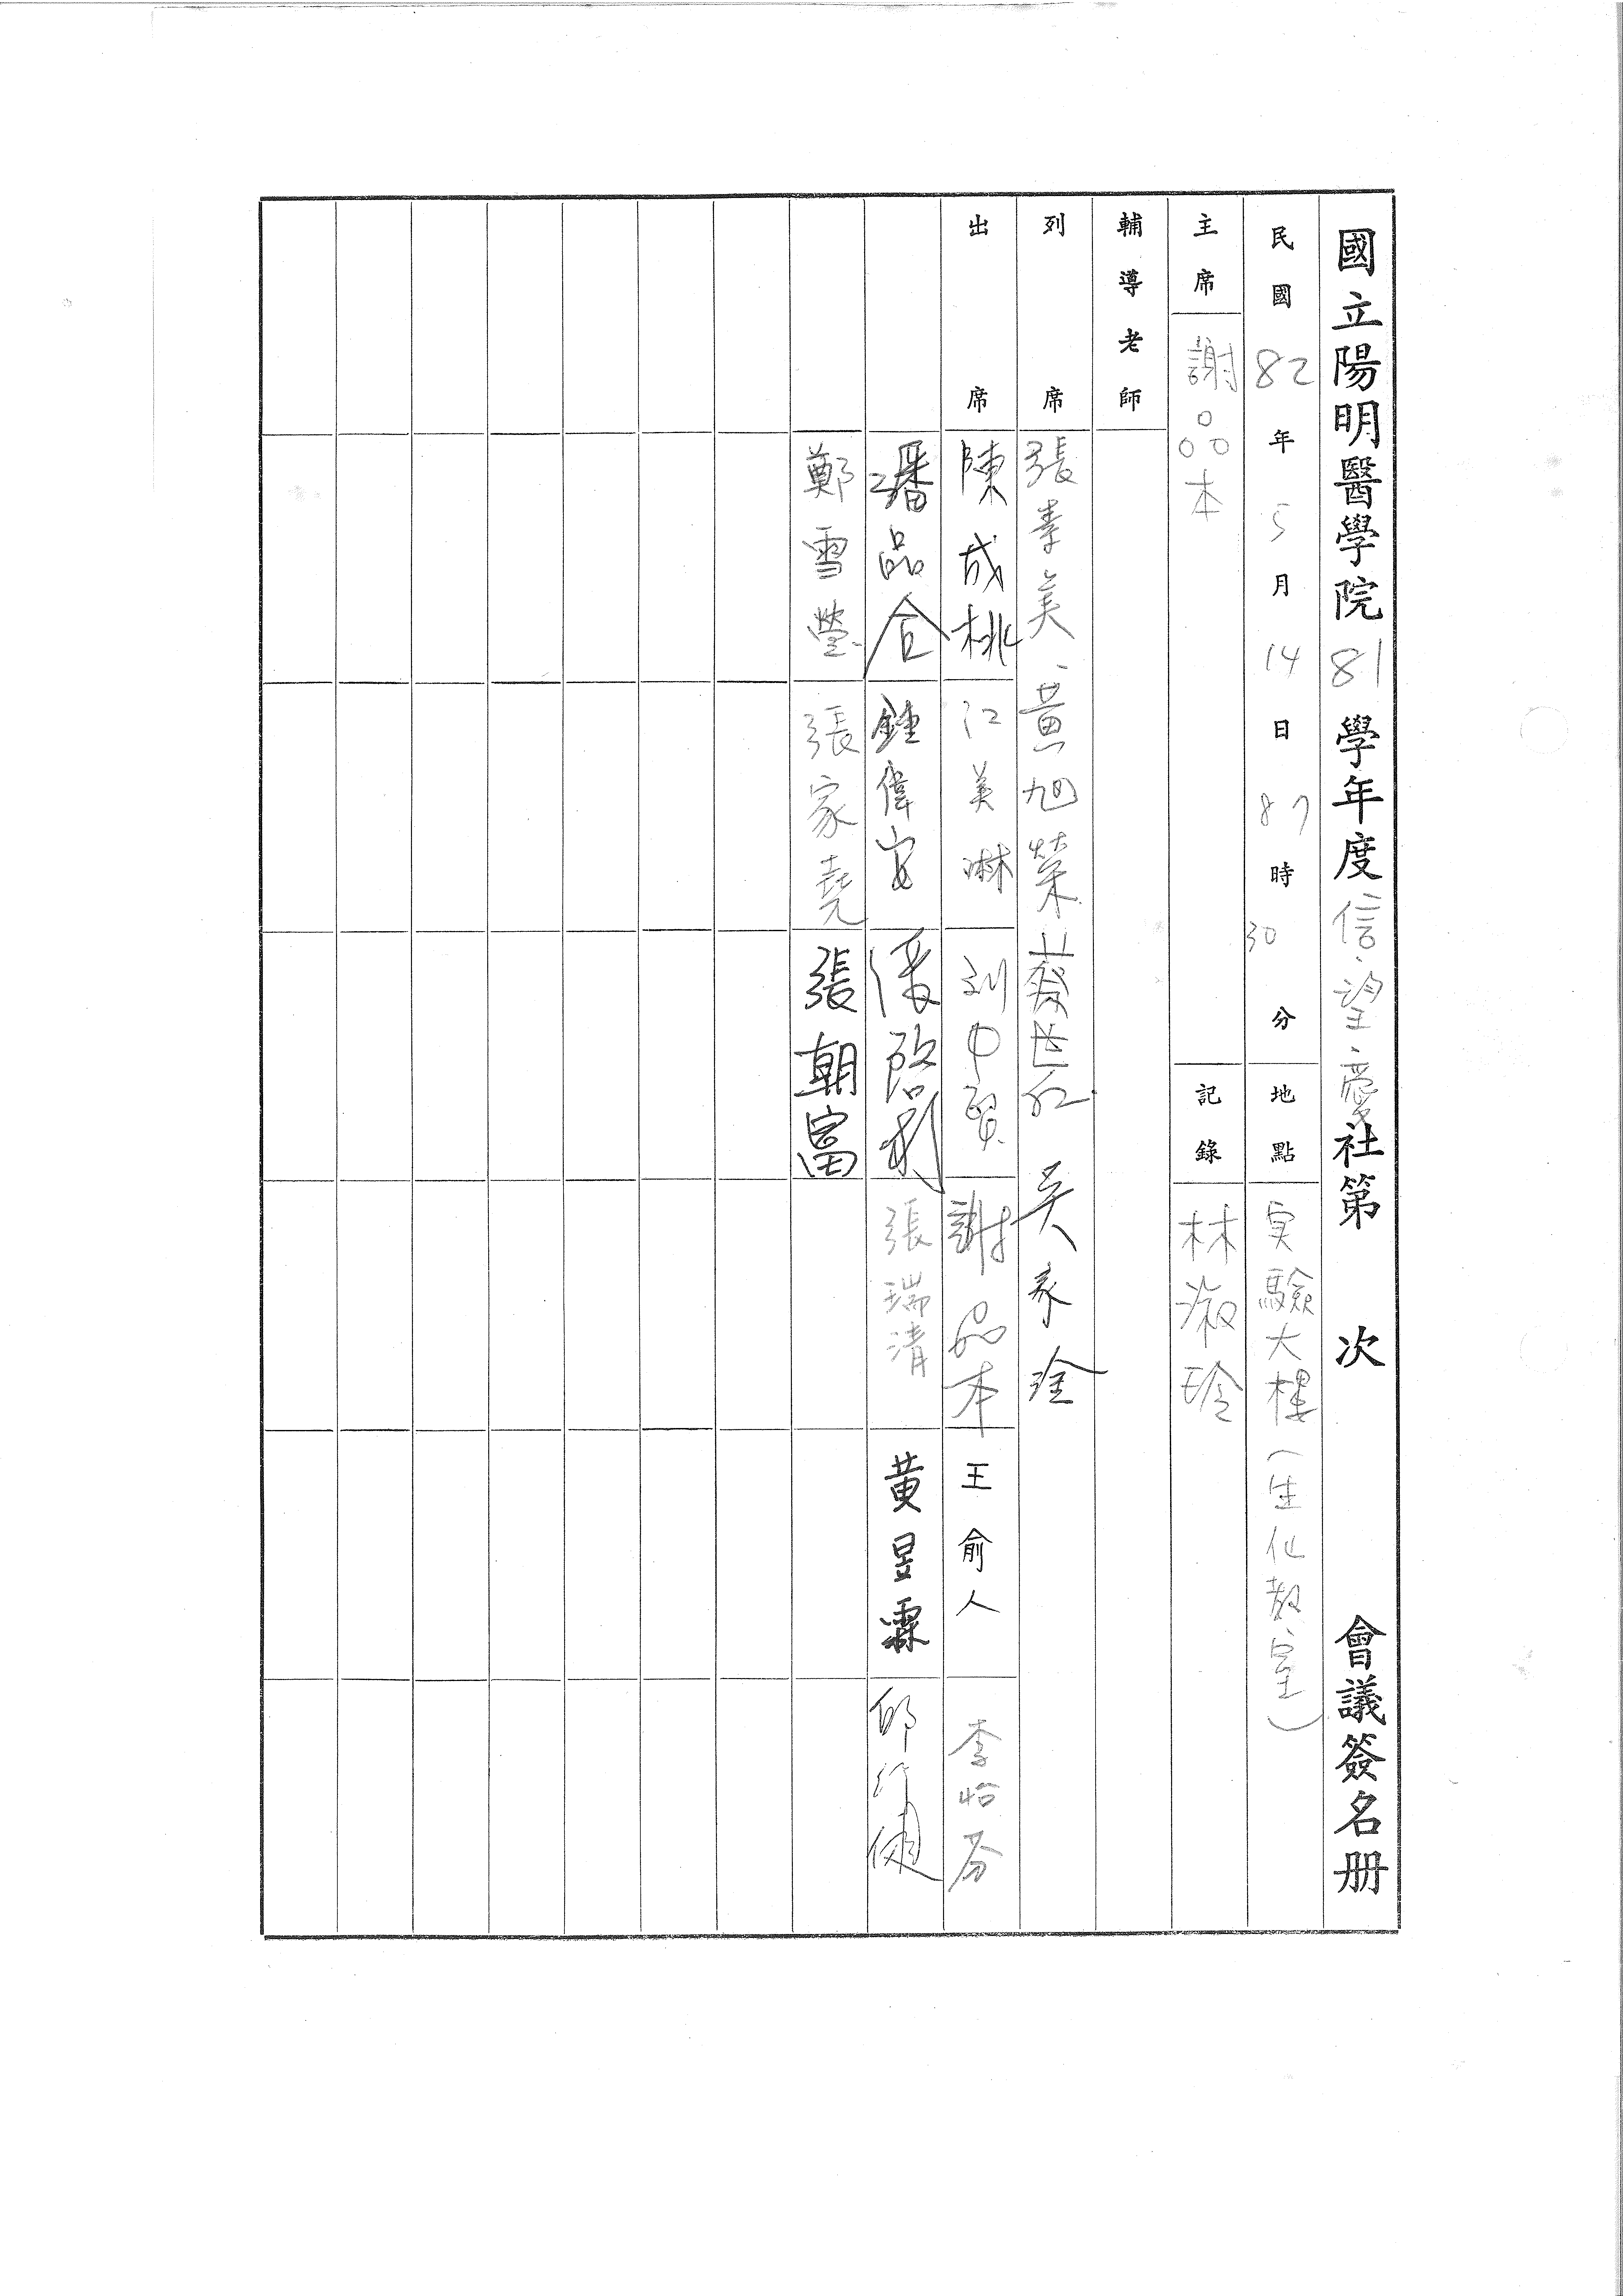 國立陽明醫學院81學年度信望愛社第 次 會議簽名冊
民國82年5月14日 87時30分 地點 実驗大樓(生化教室)
主席 謝品本 記錄 林淑玲
輔導老師
列席 張素美、黃旭榮 蔡世紅 吴家琻
出席 陳成桃 江美琳 刘中賢 謝品本 王俞人 李怡芬
潘品合 鍾偉宏 潘啓利 張瑞清 黃昱霖 邱行健
鄭雪瑩 張家堯 張朝富